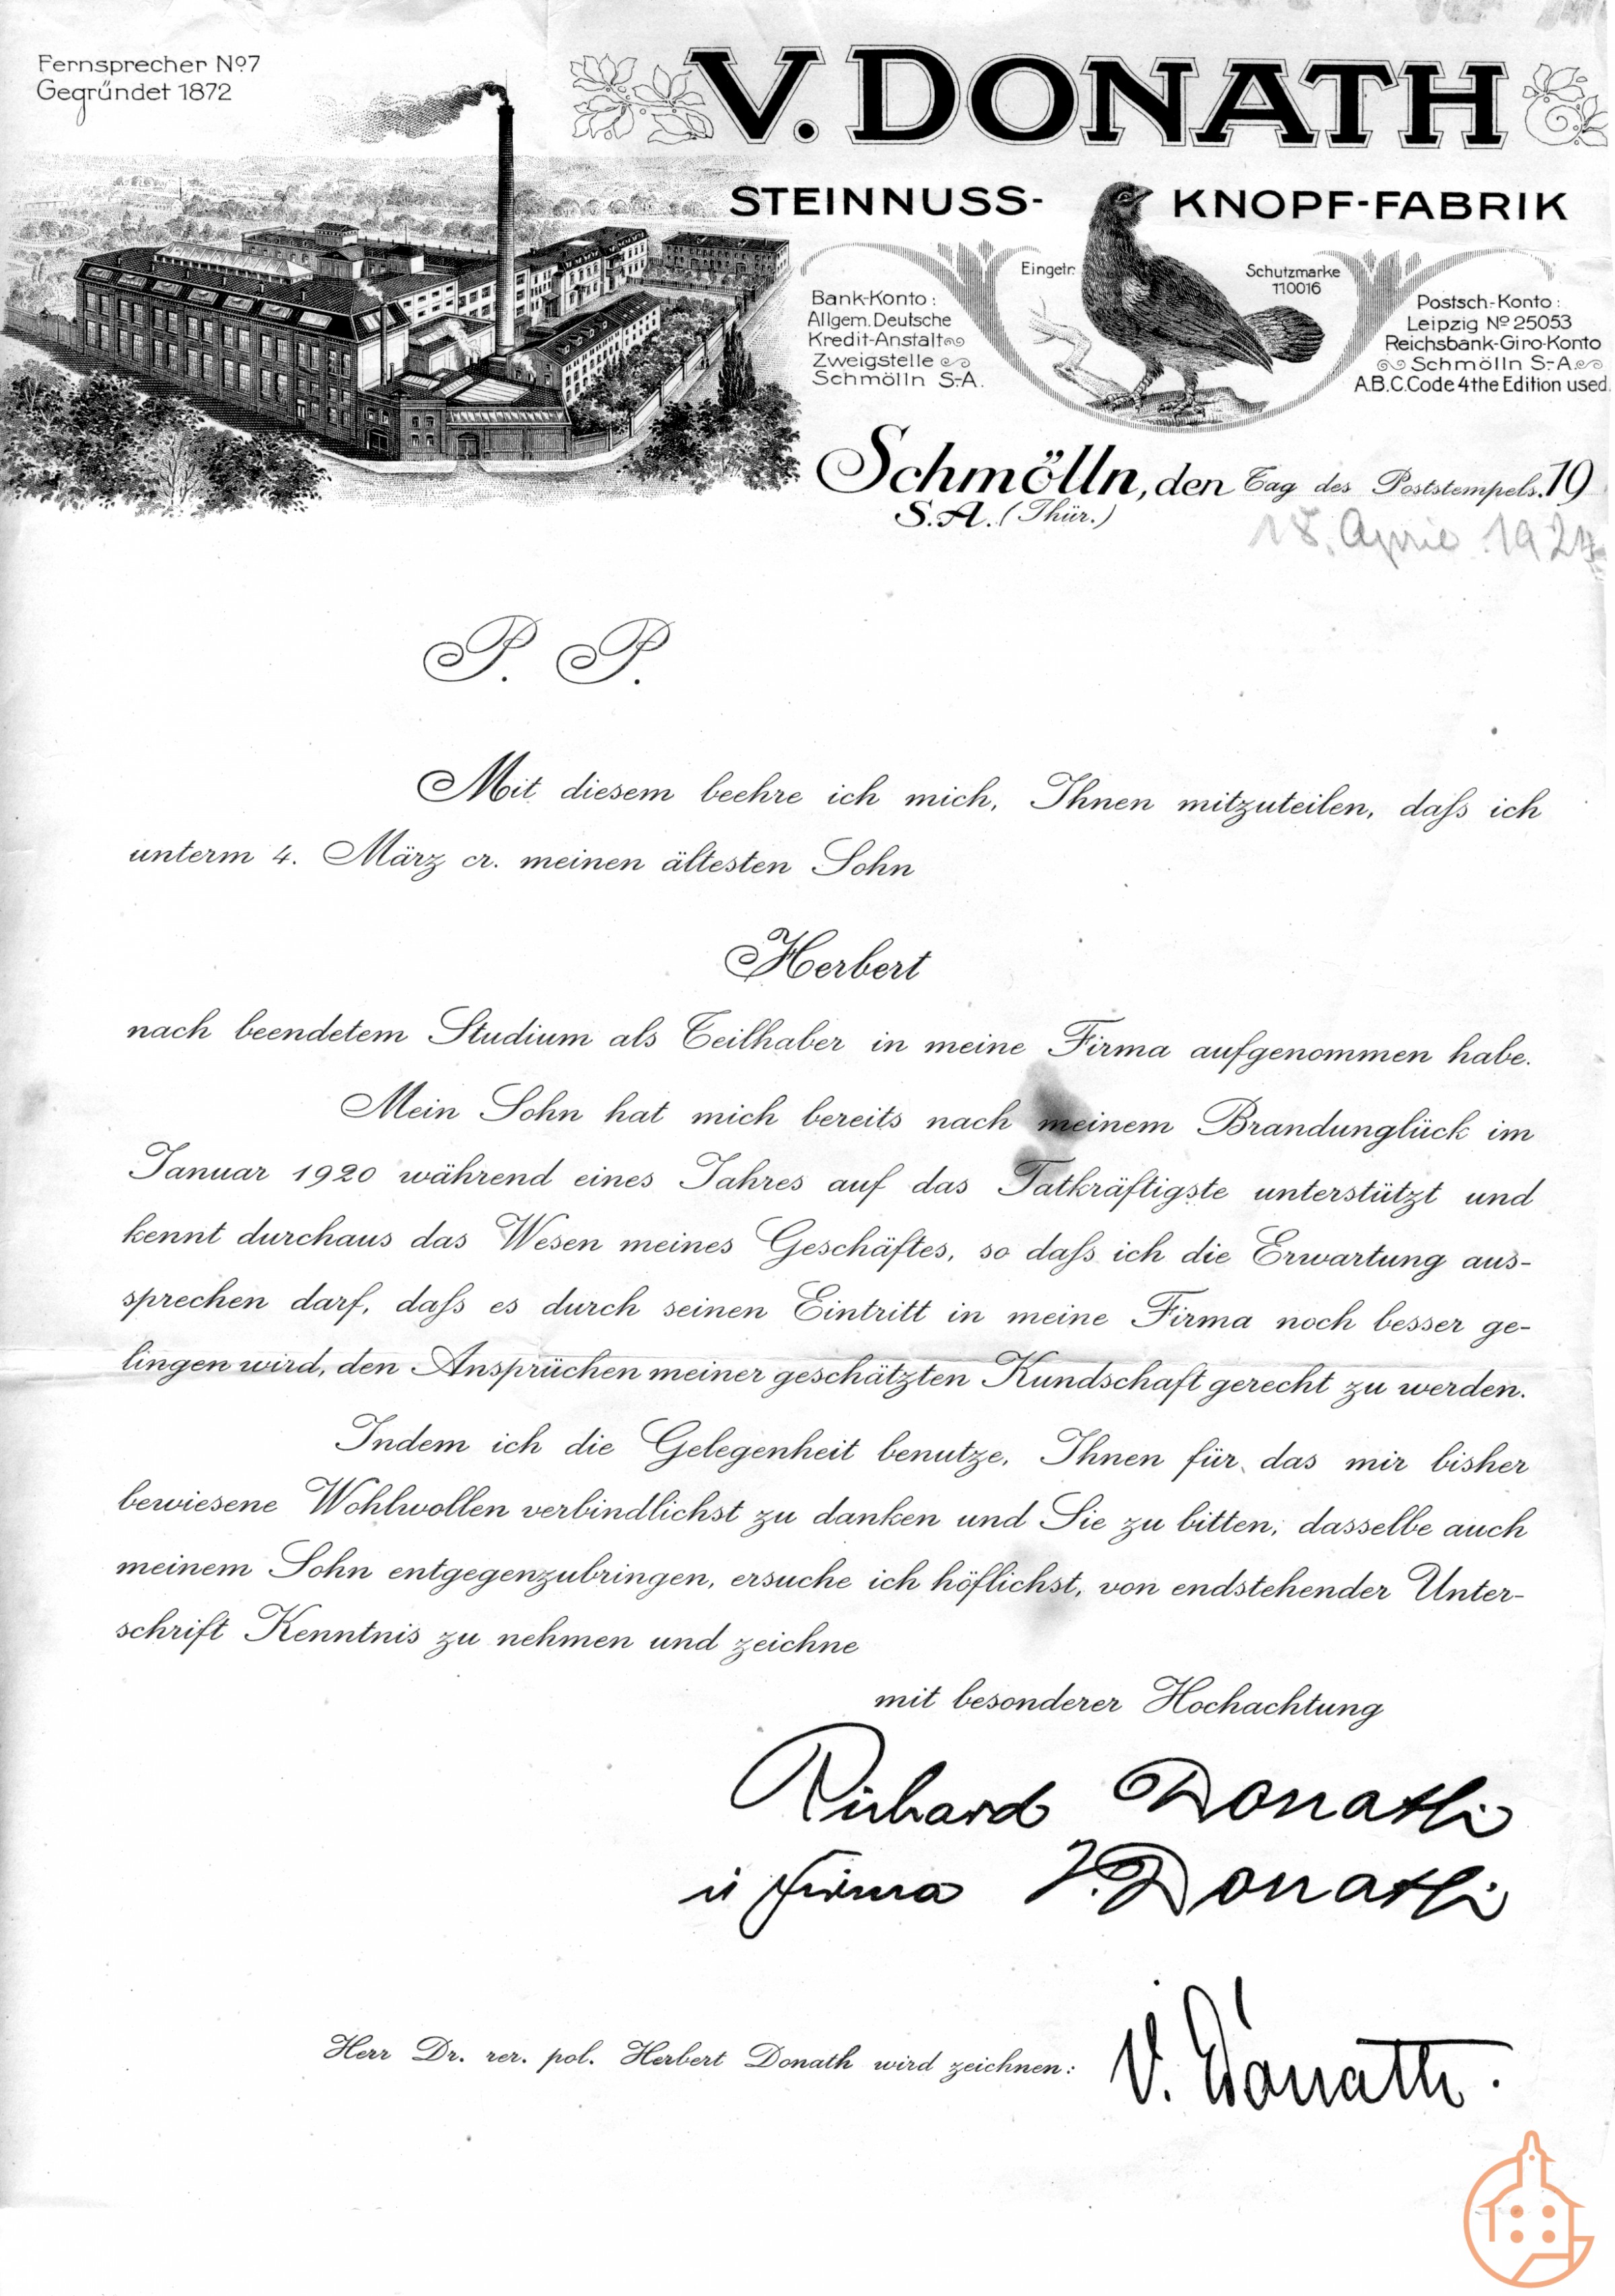 Fernsprecher Nº 7
Gegründet 1872
V. DONATH
STEINNUSS- KNOPF-FABRIK
Eingetr. Schutzmarke
110016
Bank-Konto:
Allgem. Deutsche
Kredit-Anstalt
Zweigstelle
Schmölln S.-A.
Postsch.-Konto:
Leipzig Nº 25053
Reichsbank-Giro-Konto
Schmölln S.-A.
A.B.C. Code 4the Edition used.
Schmölln, den Tag des Poststempels. 19
S.A. (Thür.)
April 192
P. P.
Mit diesem beehre ich mich, Ihnen mitzuteilen, daſs ich
unterm 4. März cr. meinen ältesten Sohn
Herbert
nach beendetem Studium als Teilhaber in meine Firma aufgenommen habe.
Mein Sohn hat mich bereits nach meinem Brandunglück im
Januar 1920 während eines Jahres auf das Tatkräftigste unterstützt und
kennt durchaus das Wesen meines Geschäftes, so daſs ich die Erwartung aus-
sprechen darf, daſs es durch seinen Eintritt in meine Firma noch besser ge-
lingen wird, den Ansprüchen meiner geschätzten Kundschaft gerecht zu werden.
Indem ich die Gelegenheit benutze, Ihnen für das mir bisher
bewiesene Wohlwollen verbindlichst zu danken und Sie zu bitten, dasselbe auch
meinem Sohn entgegenzubringen, ersuche ich höflichst, von endstehender Unter-
schrift Kenntnis zu nehmen und zeichne
mit besonderer Hochachtung
Richard Donath
i Firma V. Donath
Herr Dr. rer. pol. Herbert Donath wird zeichnen: V. Donath.